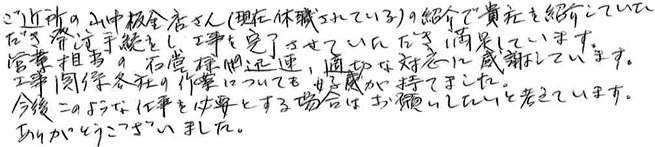 ご近所の山中板金店さん(現在休職されている)の紹介で貴社を紹介していた
だき発注手続をし、工事を完了させていただき満足しています。
営業担当の 様 迅速、適切な対応に感謝しています。
工事関係各社の作業についても好感が持てました。
今後このような仕事を必要とする場合はお願いしたいと考えています。
ありがとうございました。